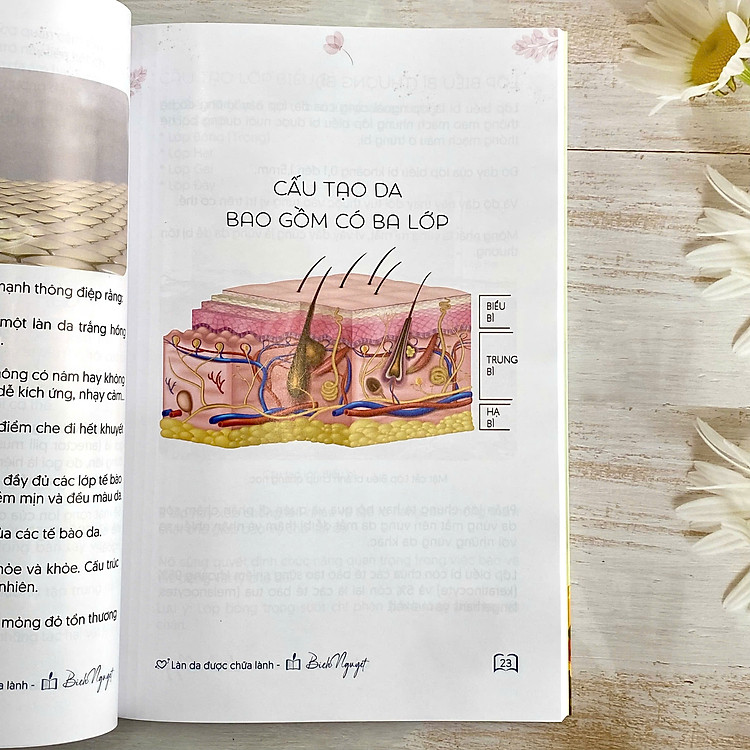 mạnh thông điệp rằng:
một làn da trắng hồng
hông có nám hay không
dễ kích ứng, nhạy cảm...
điểm che đi hết khuyết
đầy đủ các lớp tế bào
ềm mịn và đều màu da.
ủa các tế bào da.
hỏe và khỏe. Cấu trúc
nhiên.
mỏng đỏ tổn thương
a lành - Bích Nguyệt
CẤU TẠO DA
BAO GỒM CÓ BA LỚP
BIỂU
BÌ
TRUNG
BÌ
HẠ
BÌ
Làn da được chữa lành - Bích Nguyệt
23